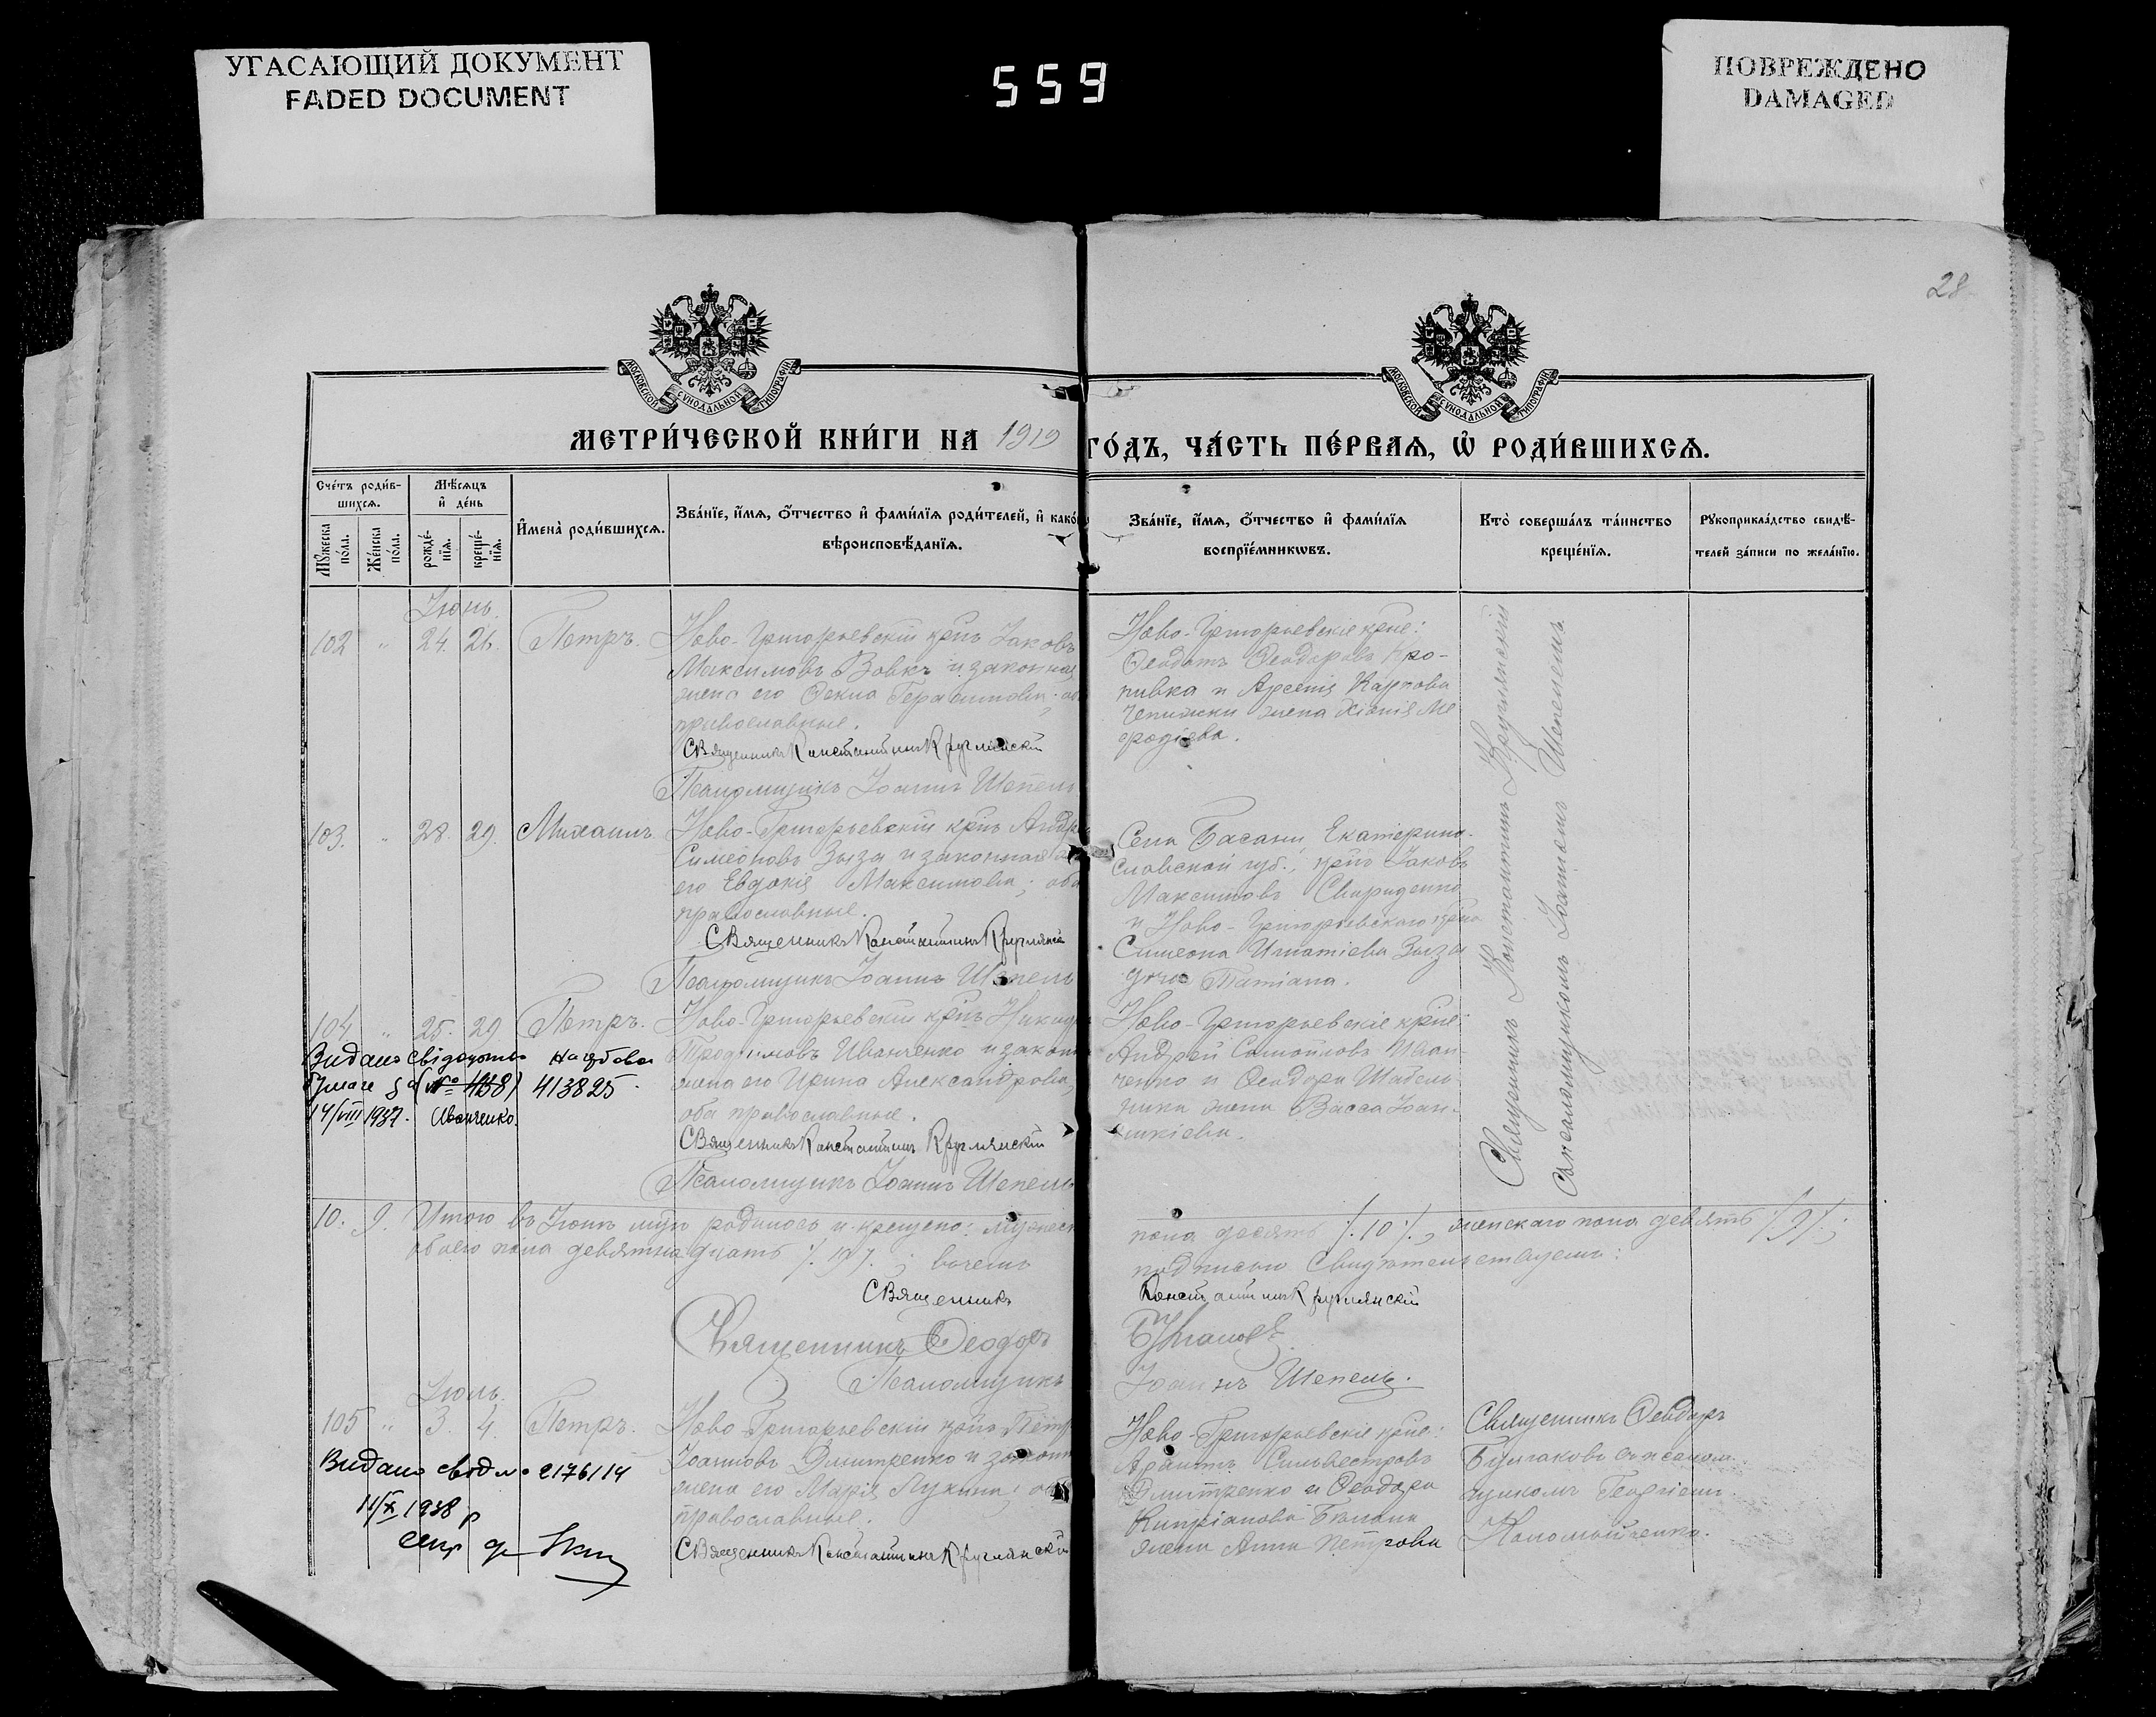 УГАСАЮЩИЙ ДОКУМЕНТ
FADED DOCUMENT
559
ПОВРЕЖДЕНО
DAMAGED
28
МОСКОВСКОЙ СѴНОДАЛЬНОЙ ТИПОГРАФІИ
МОСКОВСКОЙ СѴНОДАЛЬНОЙ ТИПОГРАФІИ
МЕТРИ́ЧЕСКОЙ КНИ́ГИ НА 1919
ГО́ДЪ, ЧА́СТЬ ПЕ́РВАѦ, Ѡ҆ РОДИ́ВШИХСѦ.
Сче́тъ роди́в-
шихсѧ.
Мѣ́сѧцъ
и҆ де́нь
Мꙋ́жеска
по́ла.
Же́нска
по́ла.
рожде́-
нїѧ.
креще́-
нїѧ.
И҆мена̀ роди́вшихсѧ.
Зва́нїе, и҆́мѧ, ѻ҆́тчество и҆ фами́лїѧ роди́телей, и҆ како́
вѣроисповѣ́данїѧ.
Зва́нїе, и҆́мѧ, ѻ҆́тчество и҆ фами́лїѧ
воспрїе́мникѡвъ.
Кто̀ соверша́лъ та́инство
креще́нїѧ.
Рꙋкоприкла́дство свидѣ́-
телей за́писи по жела́нїю.
Іюнь.
102 " 24. 26. Петръ.
Ново-Григорьевскій крнъ Іаковъ
Максимовъ Вовкъ и законная
жена его Ѳекла Герасимова; об
православные.
Священникъ Константинъ Круглянскій
Псаломщикъ Іоаннъ Шепель
Ново-Григорьевскіе крне:
Ѳеодотъ Ѳеодоровъ Кро-
пивка и Арсенія Карпова
жена Ме
ѳодіева.
103. " 28. 29. Михаилъ
Ново-Григорьевскій крнъ Андр
Симеоновъ Зыза и законная
его Евдокія Максимова; оба
православные.
Священникъ Константинъ Круглянскій
Псаломщикъ Іоаннъ Шепель
Села Басани, Екатерино-
славской губ., крнъ Іаковъ
Максимовъ Свириденко
и Ново-Григорьевскаго крна
Симеона Игнатіева Зызы
дочь Татіана.
104 " 25. 29 Петръ.
Ново-Григорьевскій крнъ Никиф
Трофимовъ Иванченко и закон
жена его Ирина Александрова,
оба православные.
Священникъ Константинъ Круглянскій
Псаломщикъ Іоаннъ Шепель
Ново-Григорьевскіе крне:
Андрей Самойловъ Иван-
ченко и Ѳеодора Шабель-
ника жена Васса Іоан-
никіева.
Видано свідоцтво
413825
14/VIII 1937. Іванченко.
Священникъ Константинъ Круглянскій
Съ псаломщикомъ Іоанномъ Шепелемъ
10. 9. Итого въ Іюнѣ мцѣ родилось и крещено: мужеск
пола десять /.10./, женскаго пола девять /.9./;
обоего пола девятнадцать /.19./. ; въ чемъ
подписью свидѣтельствуемъ:
Священникъ
Константинъ Круглянскій
Священникъ Ѳеодоръ
Булгаковъ
Псаломщикъ
Іоаннъ Шепель.
Іюль.
105 " 3. 4. Петръ.
Ново-Григорьевскій крнъ Петр
Іоанновъ Дмитренко и законн
жена его Марія Лукина; об
православные.
Священникъ Константинъ Круглянскій
Ново-Григорьевскіе крне:
Сильвестровъ
Дмитренко и Ѳеодора
Кипріанова
жена Анна Петрова
Священникъ Ѳеодоръ
Булгаковъ съ псалом-
щикомъ Георгіемъ
Коломойченко.
Видано свід № 2176114
11/X 1938 р